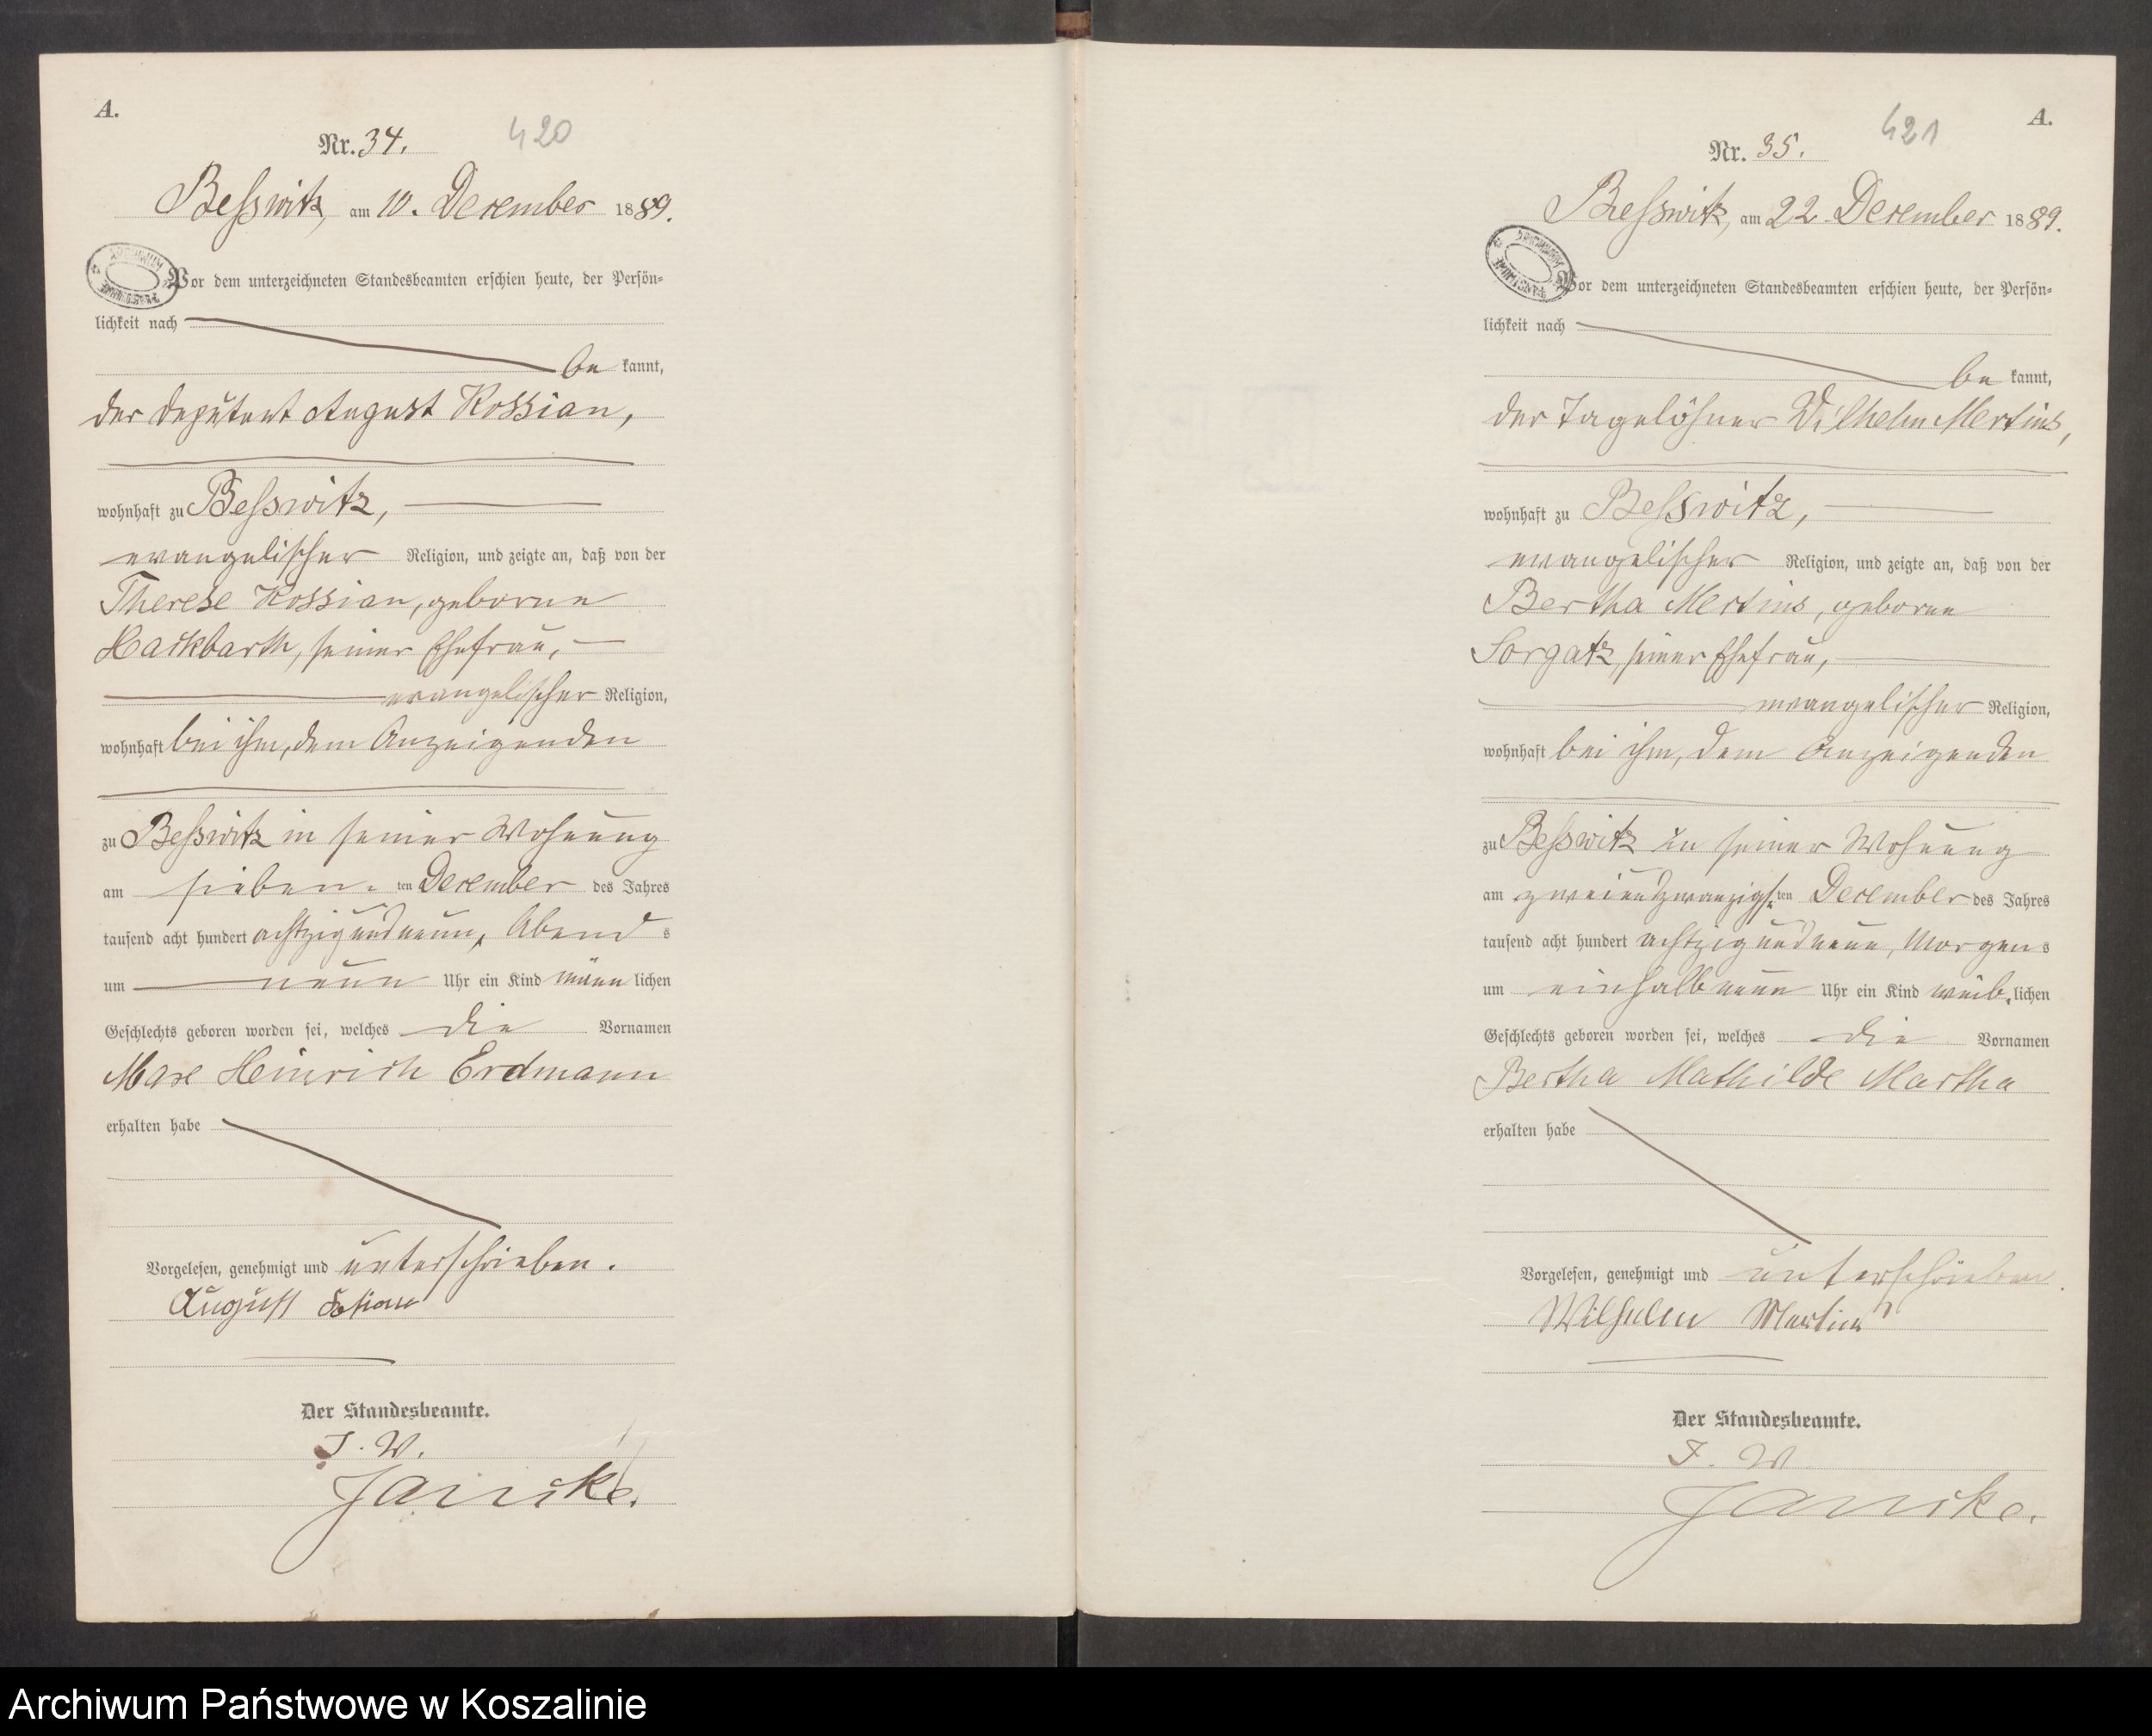 A.
Nr. 34.
420
Beßwitz, am 10. December 1889.
Vor dem unterzeichneten Standesbeamten erschien heute, der Persön-
lichkeit nach
be kannt,
der Deputant August Kossian,
wohnhaft zu Beßwitz,
evangelischer Religion, und zeigte an, daß von der
Therese Kossian, geborne
Hackbarth, seiner Ehefrau,
evangelischer Religion,
wohnhaft bei ihm, dem Anzeigenden
zu Beßwitz in seiner Wohnung
am sieben- ten December des Jahres
tausend acht hundert achtzig und neun, Abend s
um neun Uhr ein Kind männ lichen
Geschlechts geboren worden sei, welches die Vornamen
Max Heinrich Erdmann
erhalten habe
Vorgelesen, genehmigt und unterschrieben.
August
Der Standesbeamte.
J. V.
Jancke.
421
A.
Nr. 35.
Beßwitz, am 22. December 1889.
Vor dem unterzeichneten Standesbeamten erschien heute, der Persön-
lichkeit nach
be kannt,
der Tagelöhner Wilhelm Mertins,
wohnhaft zu Beßwitz,
evangelischer Religion, und zeigte an, daß von der
Bertha Mertins, geborne
Sorgatz, seiner Ehefrau,
evangelischer Religion,
wohnhaft bei ihm, dem Anzeigenden
zu Beßwitz in seiner Wohnung
am zweiundzwanzigs- ten December des Jahres
tausend acht hundert achtzig und neun, Morgen s
um einhalb neun Uhr ein Kind weib- lichen
Geschlechts geboren worden sei, welches die Vornamen
Bertha Mathilde Martha
erhalten habe
Vorgelesen, genehmigt und unterschrieben.
Wilhelm Mertins
Der Standesbeamte.
J. V.
Jancke.
Archiwum Państwowe w Koszalinie